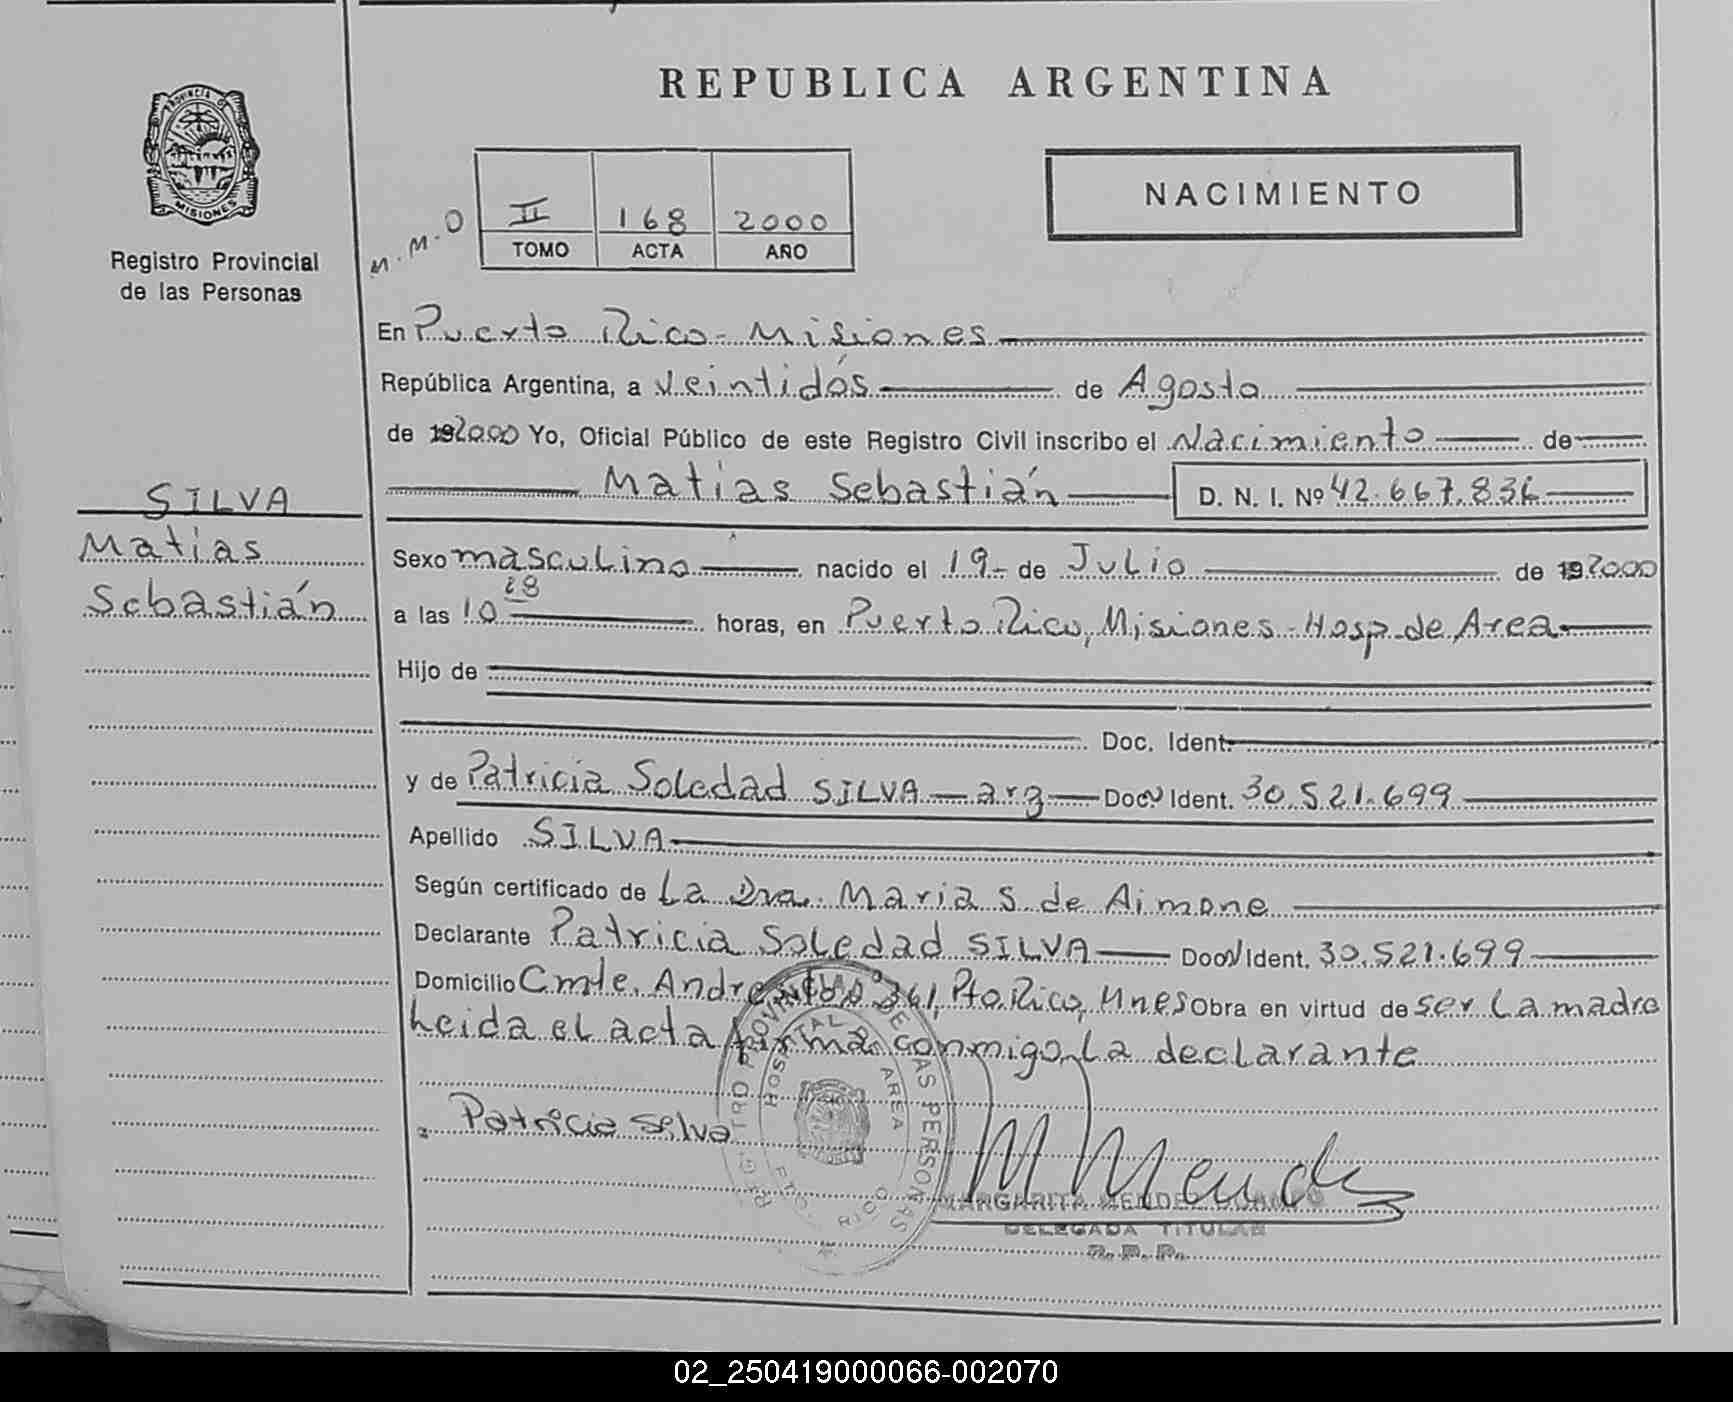 REPUBLICA ARGENTINA
PROVINCIA D MISIONES
Registro Provincial
de las Personas
M.M.O
II 168 2000
TOMO ACTA AÑO
NACIMIENTO
En Puerto Rico - Misiones
República Argentina, a Veintidós de Agosto
de 192000 Yo, Oficial Público de este Registro Civil inscribo el Nacimiento de
Matias Sebastián D. N. I. Nº 42.667.836
SILVA
Matias
Sebastián
Sexo masculino nacido el 19- de Julio de 192000
a las 10 28 horas, en Puerto Rico, Misiones - Hosp. de Area
Hijo de
Doc. Ident.
y de Patricia Soledad SILVA — arg — Doc Ident. 30.521.699
Apellido SILVA
Según certificado de La Dra. Maria S. de Aimone
Declarante Patricia Soledad SILVA — Doc Ident. 30.521.699
Domicilio Cmte. 361, Pto Rico, Mnes Obra en virtud de ser la madre
leida el acta firma conmigo, la declarante
Patricia Silva
REGISTRO PROVINCIAL DE LAS PERSONAS
HOSPITAL D AREA
PTO. RICO
M Mendez
MARGARITA MENDEZ
DELEGADA TITULAR
R. P. P.
02_250419000066-002070